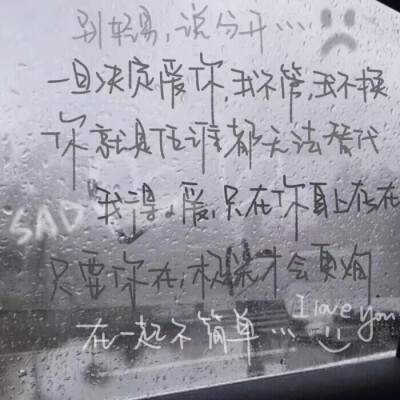 别轻易,说分开...
一旦决定爱你,我不管,我不换
你就是任谁都无法替代
SAD
我得爱,只在你身上存在
只要你在,才会
I love you
在一起不简单...